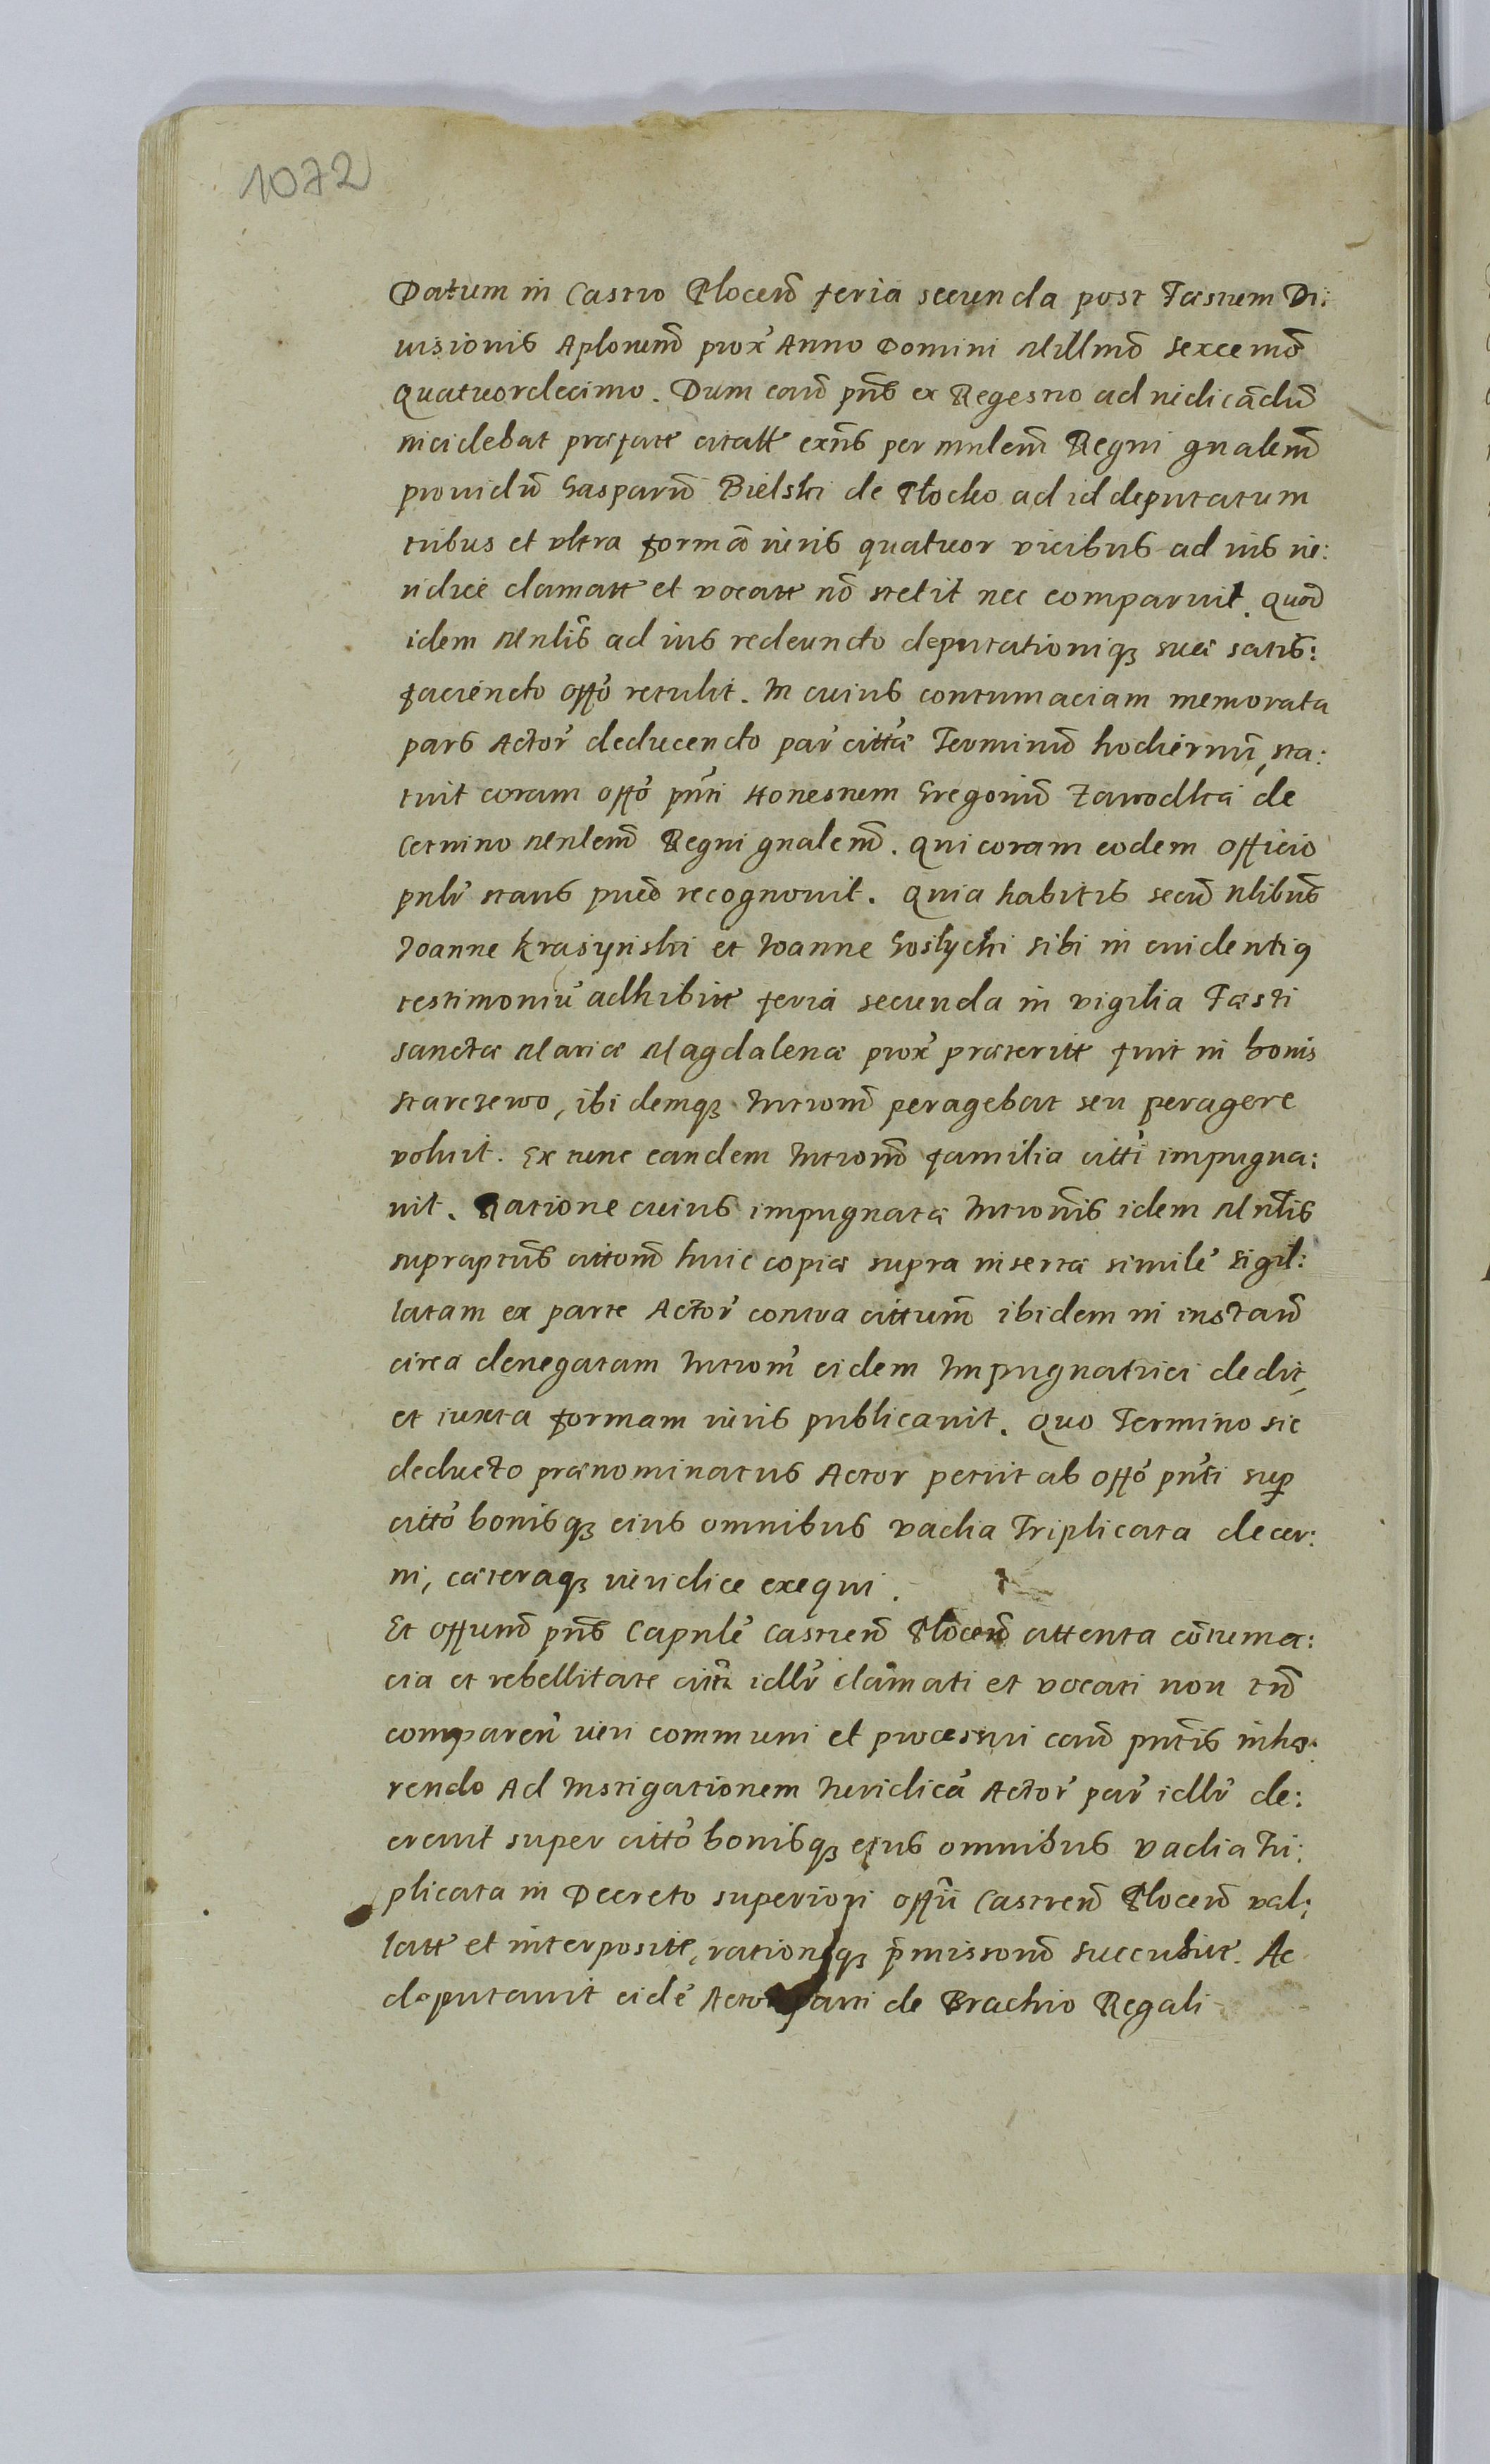 1072
Datum in Castro Plocen̄ feria secunda post Fæstum Di:
uisionis Aplorum̄ prox' Anno Domini Millm̄o Sexcem̄o
Quatuordecimo. Dum caūs pn̄s ex Regestro ad iudicādū
incidebat præfatt citatt exn̄s per mnlem̄ Regni gnalem̄
prouidū Gasparū Bielski de Płocko ad id deputatum
tribus et vltra formā iuris quatuor vicibus ad ius iu:
ridice clamatt et vocatt nō stetit nec comparuit. Quod
idem Mnlis̄ ad ius redeundo deputationiq3 suæ satis:
faciendo offo' retulit. In cuius contumaciam memorata
pars Actor' deducendo par' citta' Terminū hodiernū, sta:
tuit coram offo' pn̄ti Honestum Gregoriū Zawodka de
Cetnino Mnlem̄ Regni gnalem̄. Qui coram eodem Officio
pnlr' stans pued recognouit. Quia habitis secū Nlibus̄
Joanne Krasyński et Joanne Goslycki sibi in euidentiq3
testimoniū adhibitt feria secunda in vigilia Fæsti
Sanctæ Mariæ Magdalenæ prox' præteritt fuit in bonis
Starczewo, ibidemq3 Introm̄ peragebat seu peragere
voluit. Ex tunc eandem Introm̄ familia citti' impugna:
uit. Ratione cuius impugnatæ Intronis̄ idem Mnlis̄
supraptus̄ cittom̄ huic copiæ supra insertæ simile' sigil:
latam ex parte Actor' contra cittum̄ ibidem in instan̄
circa denegatam Introm' eidem Impugnatrici dedit,
et iuxta formam iuris publicauit. Quo Termino sic
deducto prænominatus Actor petiit ab offo' pn̄ti sup
citto' bonisq3 eius omnibus vadia Triplicata decer:
ni, cæteraq3 iuridice exequi.
Et offium̄ pn̄s Capnle' Castren̄ Plocen̄ attenta cōtuma:
cia et rebellitate citti idlr' clāmati et vocati non tn̄
comparen̄ iuri communi et processui caūs pn̄tis inhæ:
rendo Ad Instigationem Iuridica' Actor' par' idlr' de:
creuit super citto' bonisq3 ejus omnibus vadia Tri:
plicata in Decreto superiori offii Castren̄ Plocen̄ val:
latt et interpositt, rationeq3 p̄missorum̄ succubitt. Ac
deputauit eide' Actor parti de Brachio Regali